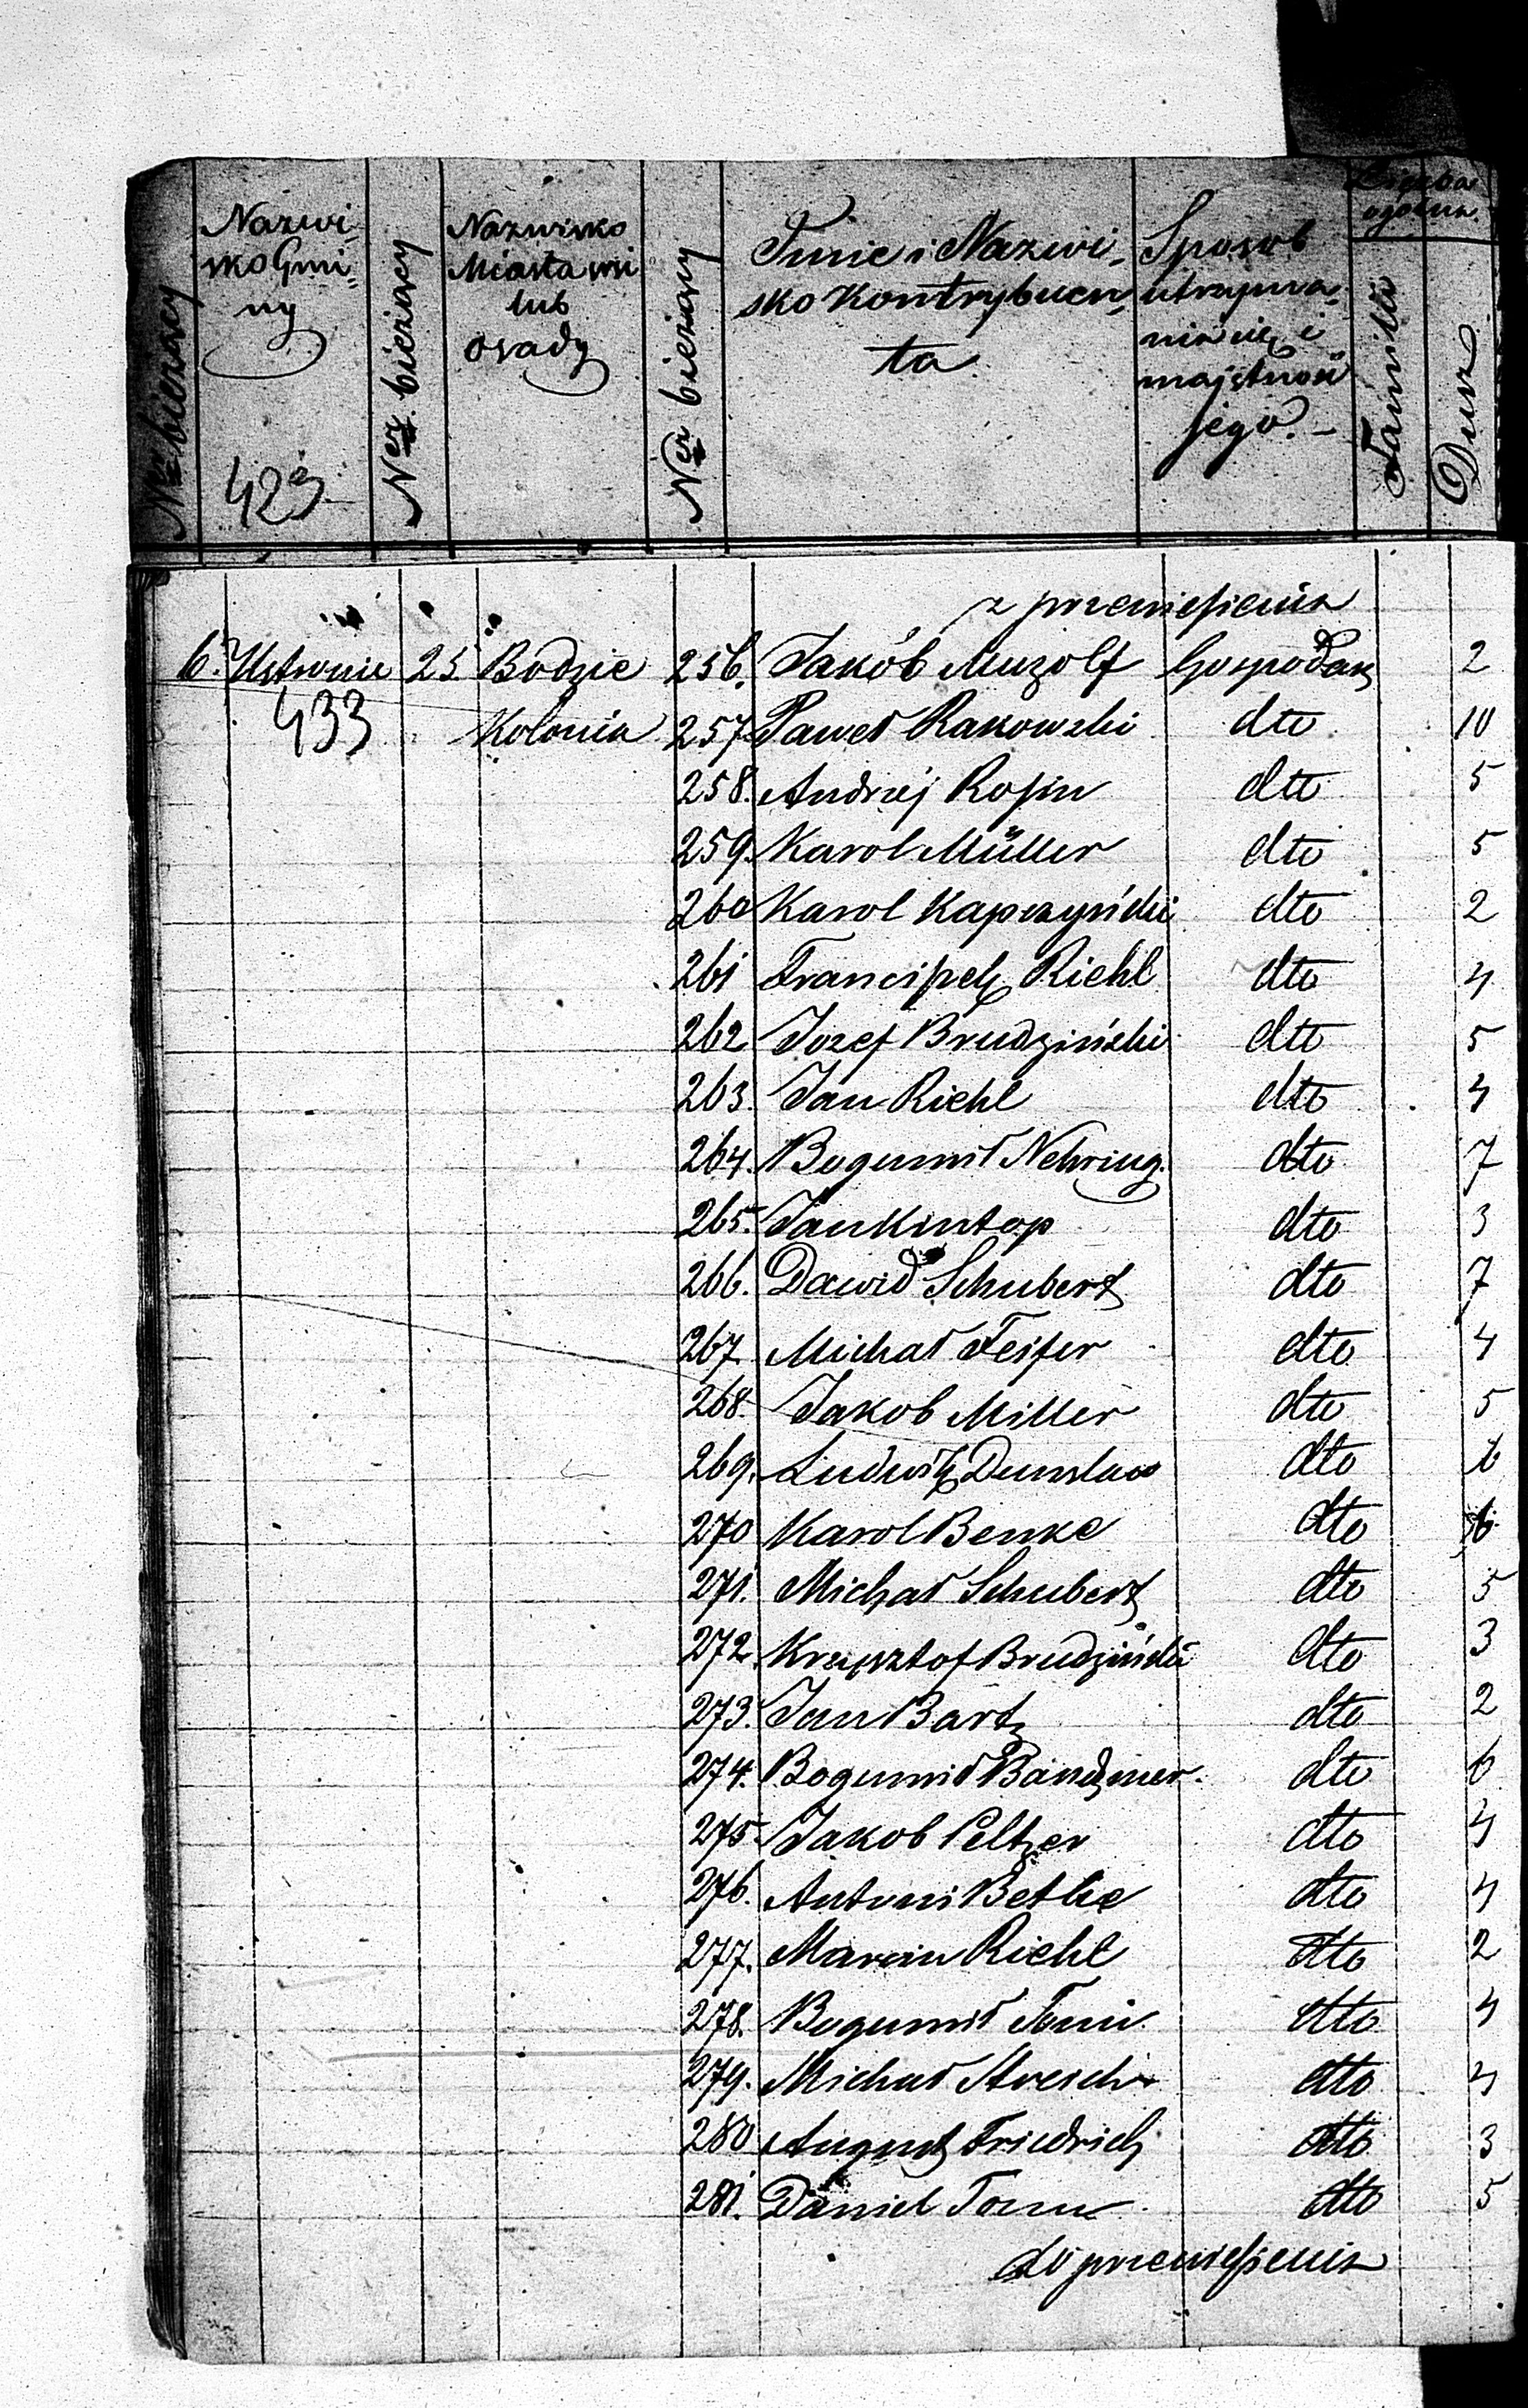 Ner bieżący
Nazwi-
sko Gmi-
ny
423
Ner bieżący
Nazwisko
Miasta wsi
lub
osady
Ner bieżący
Imie i Nazwi-
sko Kontrybuen-
ta
Sposob
utrzyma-
nia się i
majętność
jego. -
Liczba
ogólna
Familii
Dusz
z przeniesienia
6. Ustronie 25 Bodzie 256. Jakób Muzolf Gospodarz 2
433 Kolonia 257. Paweł Rakowski dto 10
258. Andrzej Rossin dto 5
259. Karol Müller dto 5
260 Karol Kapczyński dto 2
261 Franciszek Riehl dto 4
262 Jozef Brudziński dto 5
263. Jan Riehl dto 4
264. Bogumił Nehring. dto 7
265. Jan Kintop dto 3
266. Dawid Schubert dto 7
267. Michał Feifer dto 4
268. Jakob Miller dto 5
269. Ludwik dto 6
270 Karol Benke dto 6
271. Michał Schubert dto 5
272. Krzysztof Brudziński dto 3
273. Jan Bartz dto 2
274. Bogumił dto 6
275. Jakob Peltzer dto 4
276. Antoni Bethe dto 4
277. Marcin Riehl dto 2
278. Bogumił dto 4
279. Michał dto 4
280 August Friedrich dto 3
281. Daniel dto 5
do przeniesienia